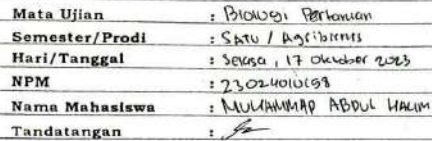 Mata Ujian : Biologi Pertanian
Semester/Prodi : Satu / Agribisnis
Hari/Tanggal : Selasa, 17 Oktober 2023
NPM : 23024010158
Nama Mahasiswa : MUHAMMAD ABDUL HALIM
Tandatangan :